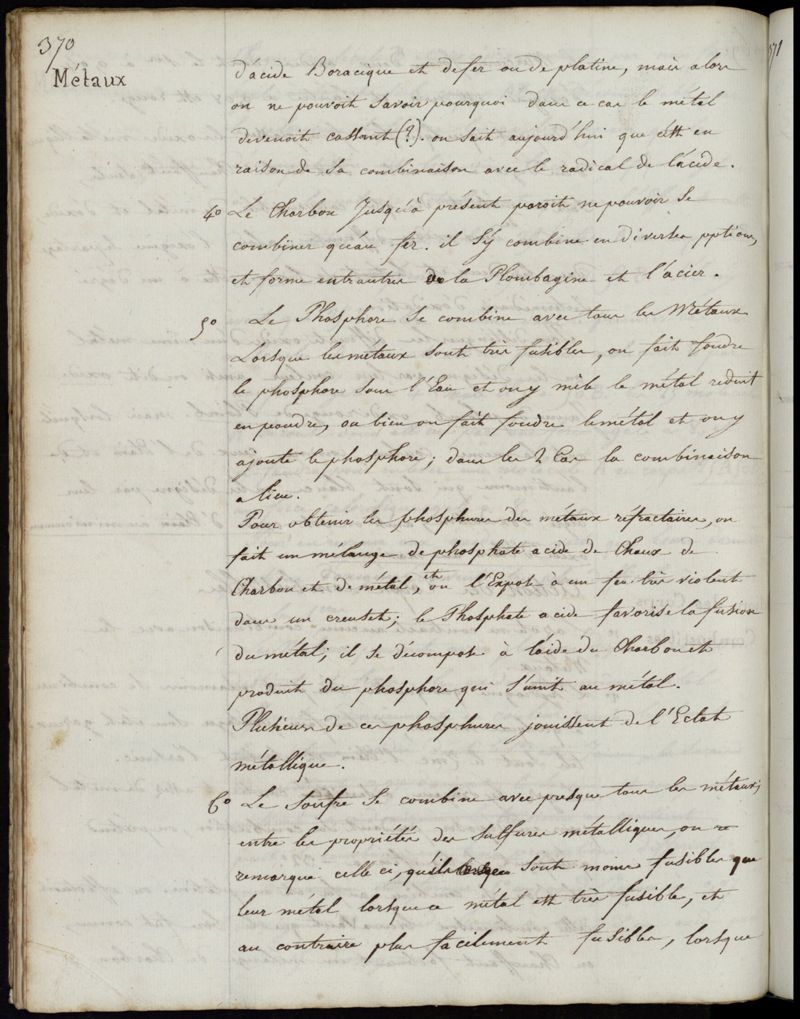 370
Métaux
d'acide Boracique et de fer ou de platine, mais alors
on ne pouvoit savoir pourquoi dans ce cas le métal
devenoit cassant (?). on sait aujourd'hui que c'est en
raison de sa combinaison avec le radical de l'acide.
4° Le Charbon Jusqu'à présent paroit ne pouvoir se
combiner qu'au fer. il s'y combine en diverses pptions,
et forme entr'autres de la Plombagine et l'acier.
5° Le Phosphore se combine avec tous les Métaux
Lorsque les métaux sont très fusibles, on fait fondre
le phosphore sous l'Eau et on y mêle le métal reduit
en poudre, ou bien on fait fondre le métal et on y
ajoute le phosphore; dans les 2 Cas la combinaison
a lieu.
Pour obtenir les phosphures des métaux réfractaires, on
fait un mélange de phosphate acide de Chaux de
Charbon et de métal, et on l'Expose à un feu très violent
dans un creuset; le Phosphate acide favorise la fusion
du métal; il se décompose à l'aide du Charbon et
produit du phosphore qui s'unit au métal.
Plusieurs de ces phosphures jouissent de l'Eclat
métallique.
6° Le Soufre se combine avec presque tous les métaux;
entre les propriétés des Sulfures métalliques, on
remarque celle ci, qu'ils sont moins fusibles que
leur métal lorsque ce métal est très fusible, et
au contraire plus facilement fusibles, lorsque
371